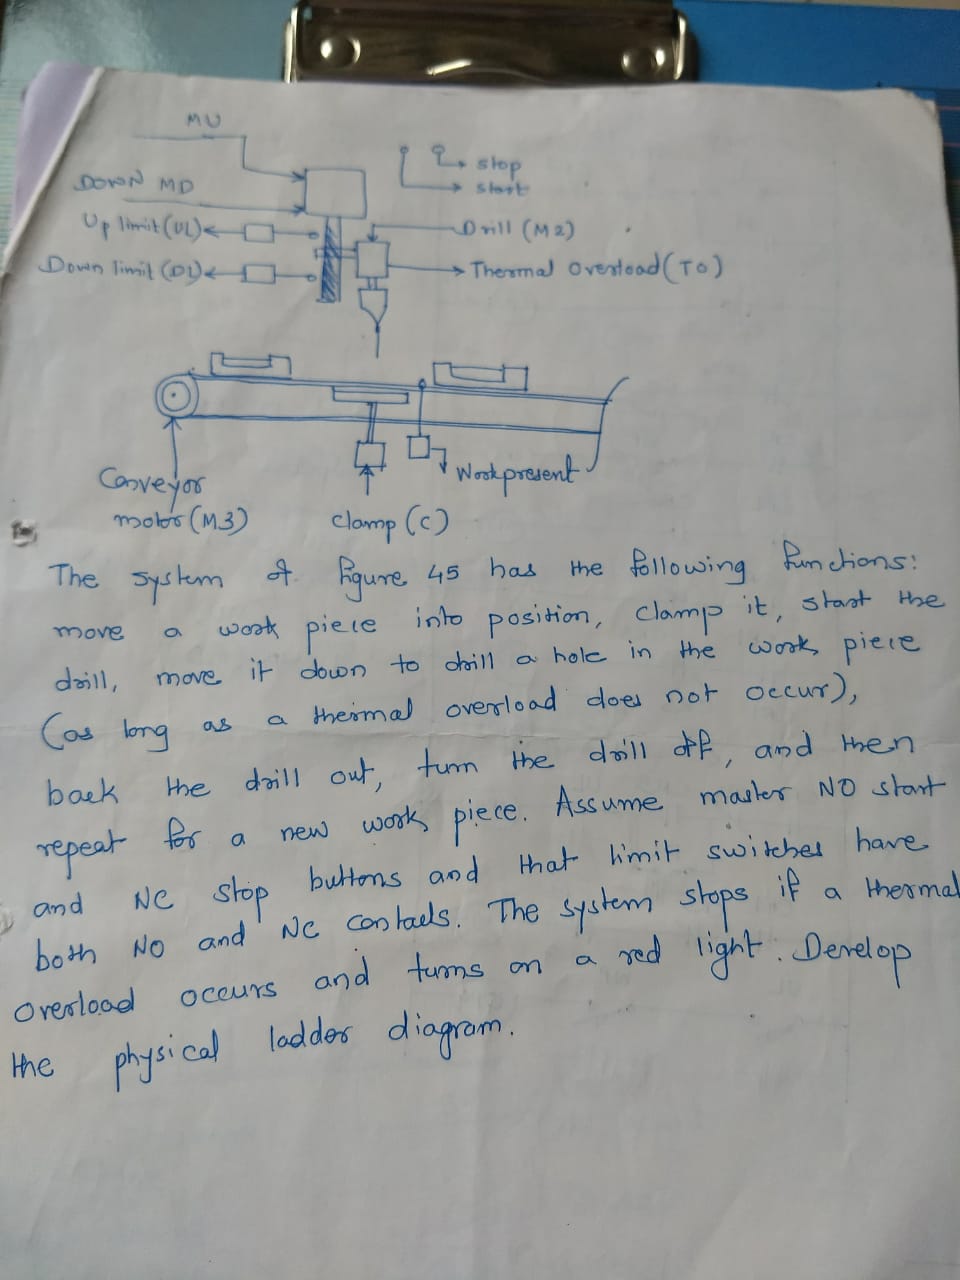 MU
stop
start
DOWN MD
Up limit (UL)
Drill (M2)
Down limit (DL)
Thermal Overload (TO)
Work present
Conveyor
motor (M3)
clamp (C)
The system of figure 45 has the following functions:
move a work piece into position, clamp it, start the
drill, move it down to drill a hole in the work piece
(as long as a thermal overload does not occur),
back the drill out, turn the drill off, and then
repeat for a new work piece. Assume master NO start
and NC stop buttons and that limit switches have
both NO and NC contacts. The system stops if a thermal
overload occurs and turns on a red light. Develop
the physical ladder diagram.